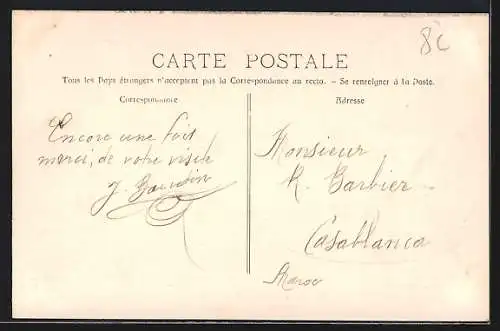 8c
CARTE POSTALE
Tous les Pays étrangers n'acceptent pas la Correspondance au recto. - Se renseigner à la Poste.
Correspondance
Adresse
Encore une fois
merci, de votre visite
J.
Monsieur
R. Barbier
Casablanca
Maroc